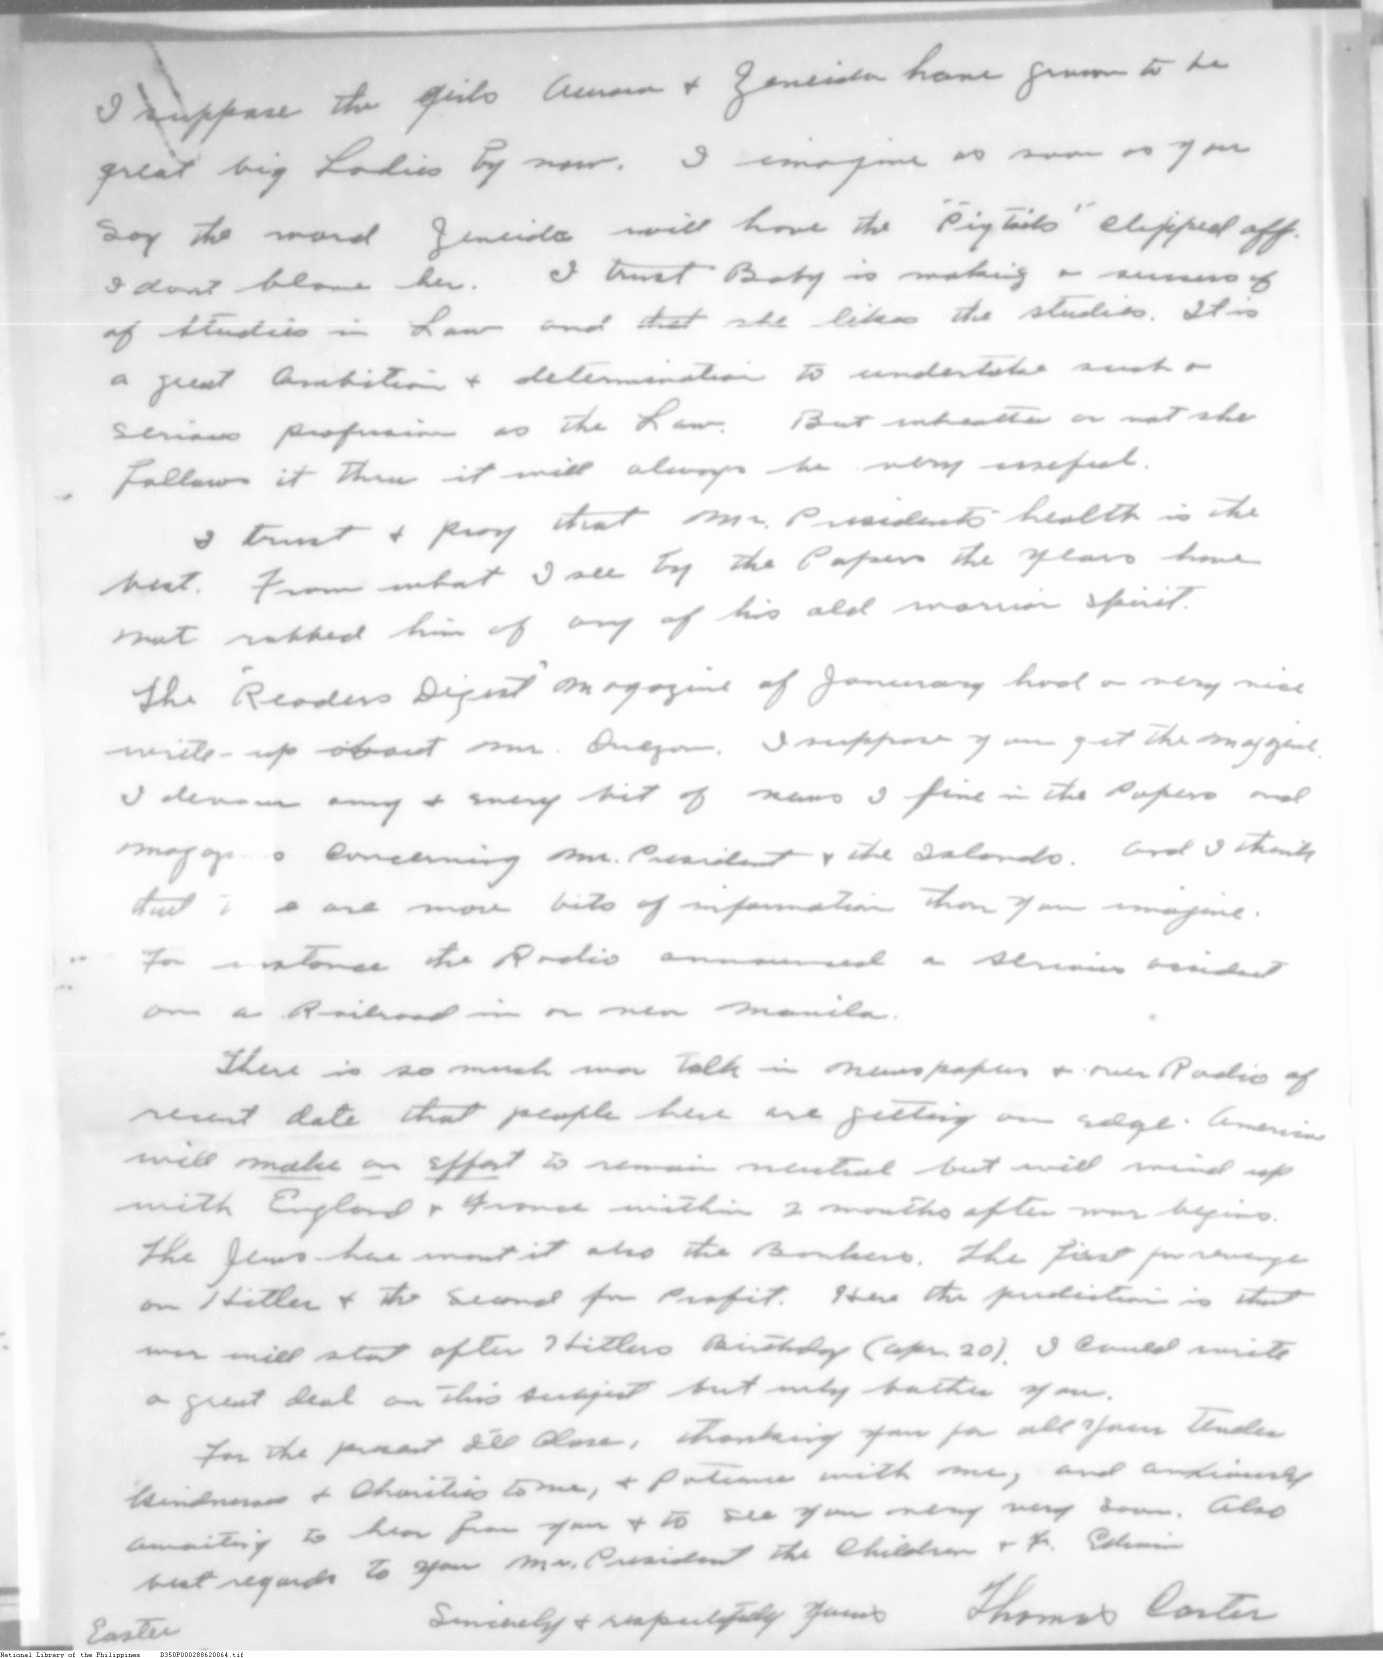 I suppose the girls Aurora + Zeneida have grown to be
great big Ladies by now. I imagine as soon as you
say the word Zeneida will have the "Pigtails" clipped off.
I dont blame her. I trust Baby is making a success of
of studies in Law and that she likes the studies. It is
a great Ambition + determination to undertake such a
serious profession as the Law. But wheather or not she
follows it thru it will always be very useful.
I trust + pray that Mr. Presidents health is the
best. From what I see by the Papers the years have
not robbed him of any of his old warrior spirit.
The "Readers Digest" Magazine of Januarary had a very nice
write-up about Mr. Quezon. I suppose you get the magazine.
I devour any + every bit of news I fine in the Papers and
concerning Mr. President + the Islands. And I think
that are more bits of information than you imagine.
For instance the Radio announced a serious accident
on a Railroad in or near Manila.
There is so much war talk in newspapers + over Radio of
recent date that people here are getting on edge. America
will make an effort to remain neutral but will wind up
with England + France within 2 months after war begins.
The Jews here want it also the Bankers. The first for revenge
on Hitler + the second for Profit. Here the prediction is that
war will start after Hitlers Birthday (Apr. 20). I could write
a great deal on this subject but why bother you.
For the present I'll close, thanking you for all your tender
kindness + Charities to me, + Patience with me, and anxiously
awaiting to hear from you + to see you very very soon. Also
best regards to you Mr. President the Children + Fr. Edwin
Sincerely + respectfully yours Thomas Carter
Easter
National Library of the Philippines D350P000288620064.tif